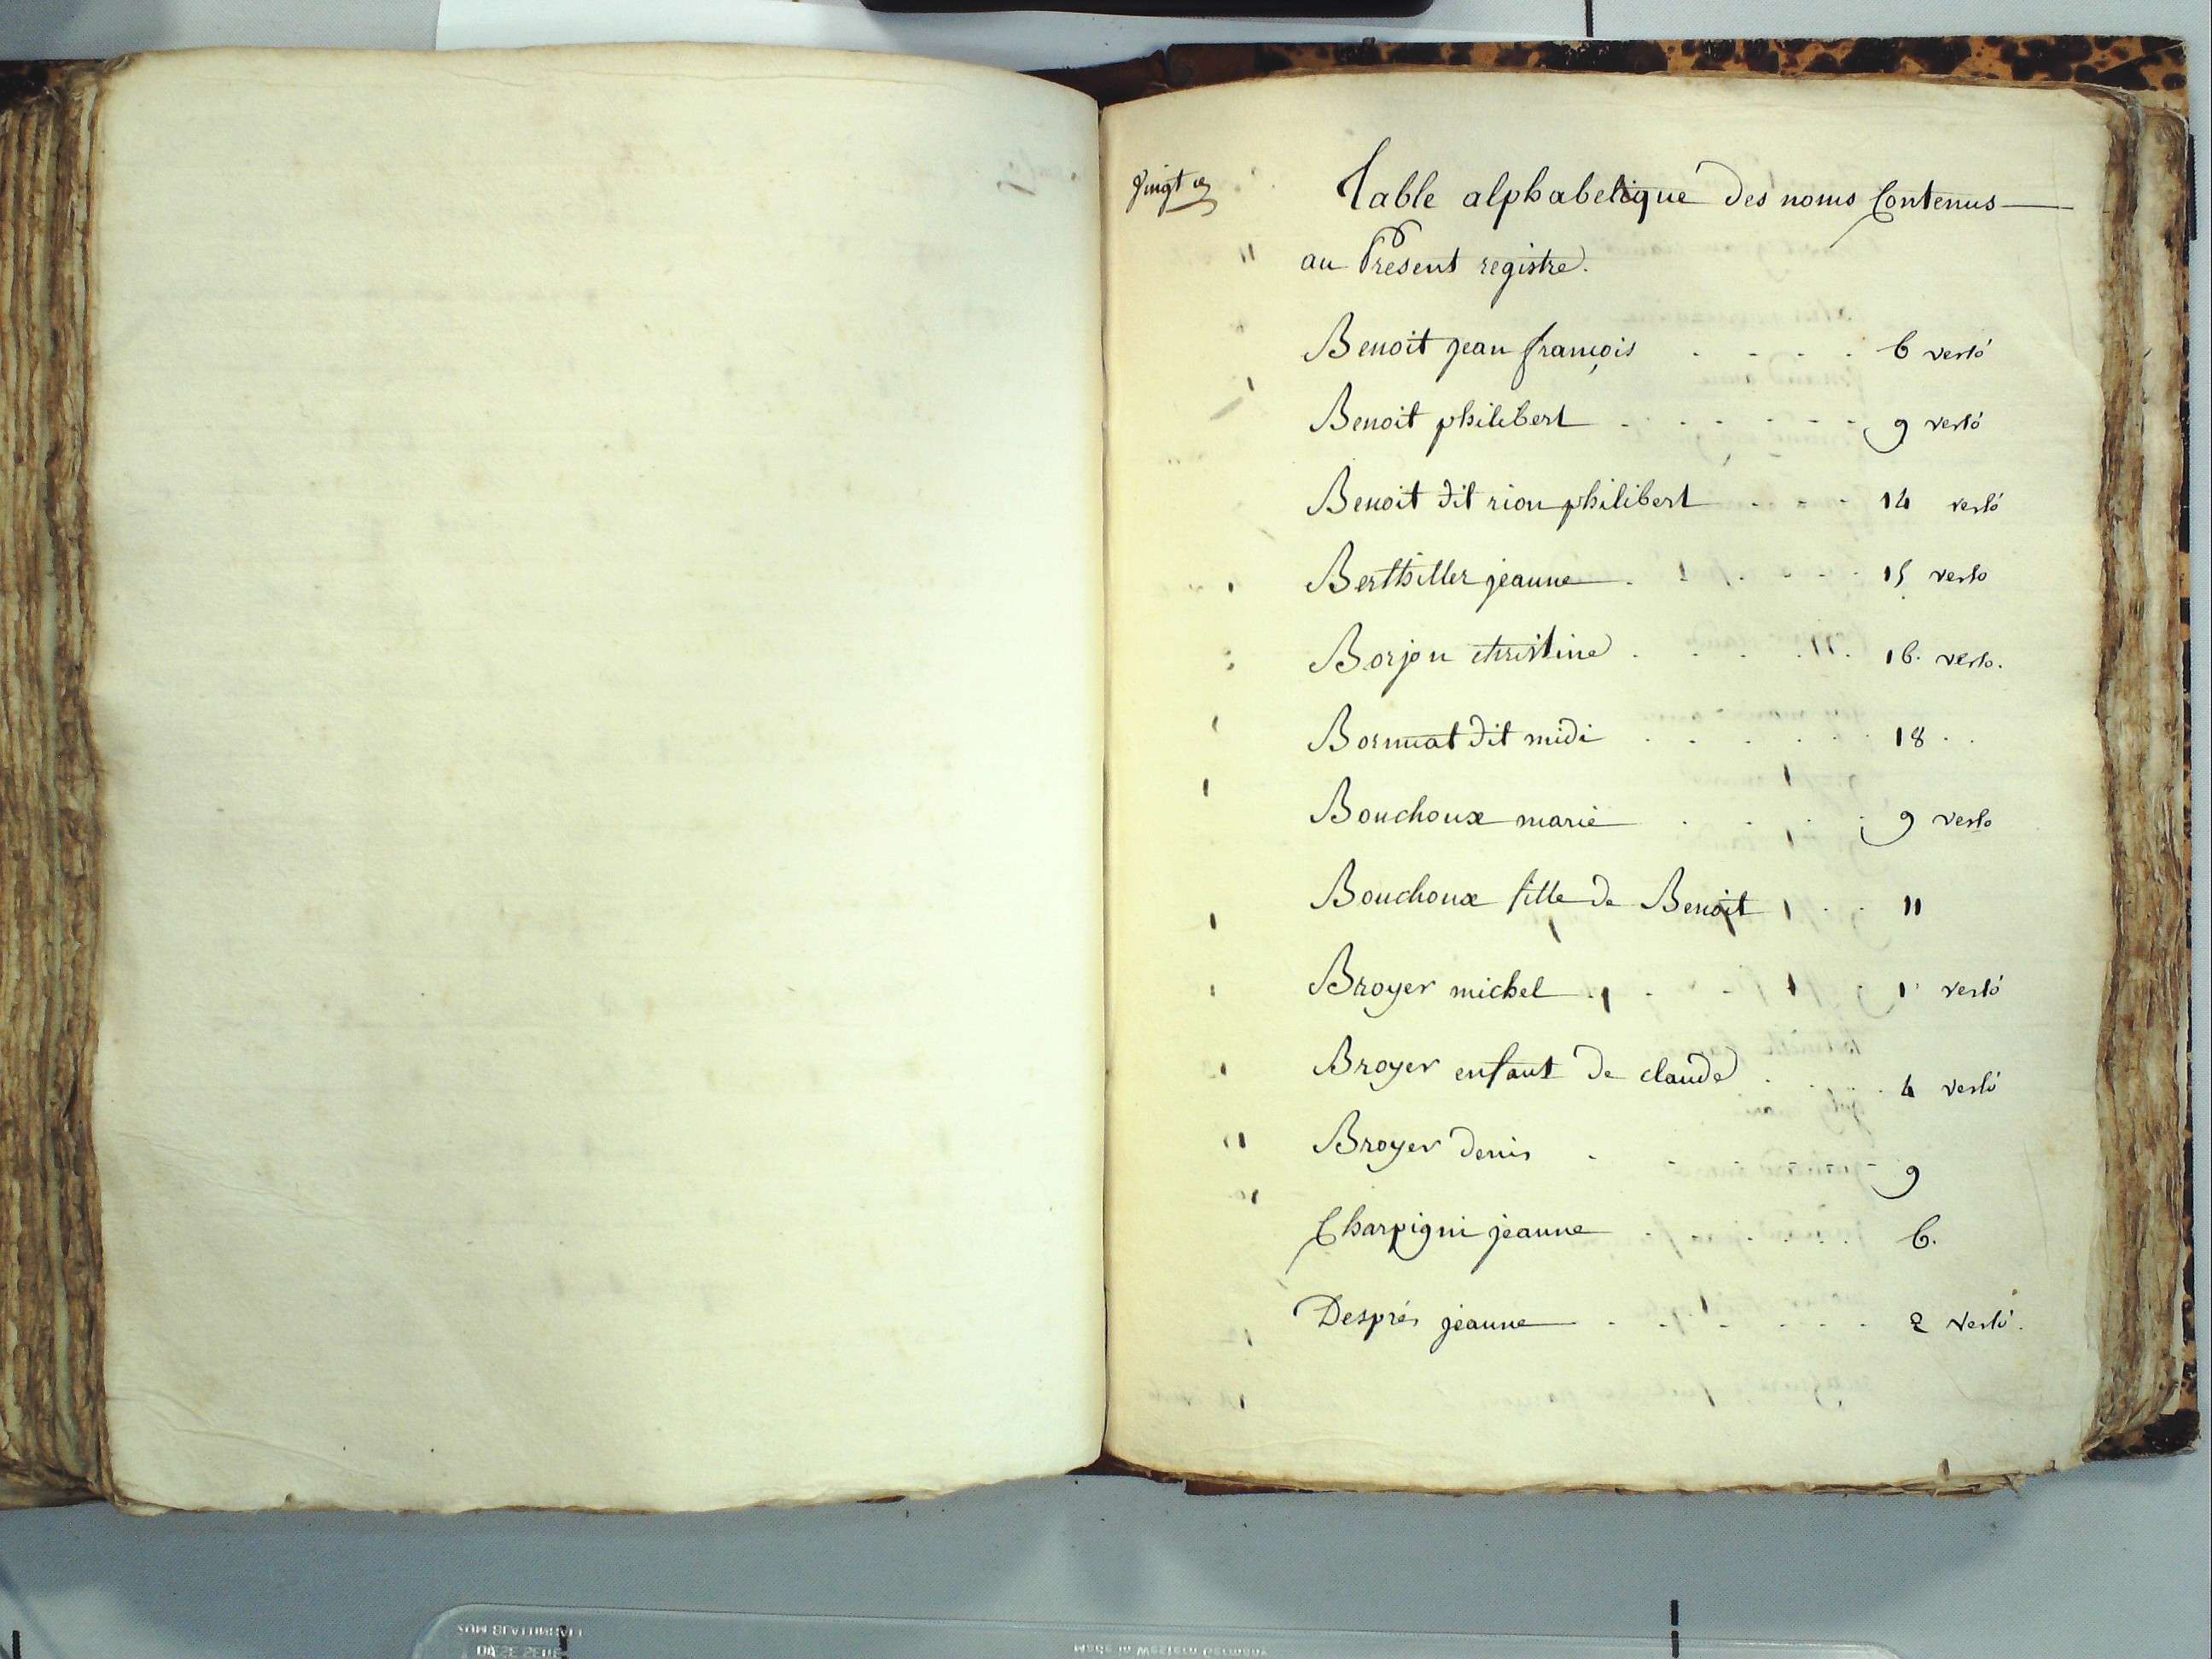 vingt
Table alphabetique des noms Contenus
au Present registre.
Benoit jean françois . . . . 6 verso
Benoit philibert . . . . . . 9 verso
Benoit dit rion philibert . . . 14 verso
Berthiller jeanne . . . . . 15 verso
Borjon christine . . . . . 16. verso.
Bormat dit midi . . . . . . 18 . .
Bouchoux marie . . . . 9 verso
Bouchoux fille de Benoit . . 11
Broyer michel . . . . 1 verso
Broyer enfant de claude . . . . 4 verso
Broyer denis . . . . . . 9
Charpigni jeanne . . . . . . 6.
Després jeanne . . . . . . 2 verso.
Made in Western Germany